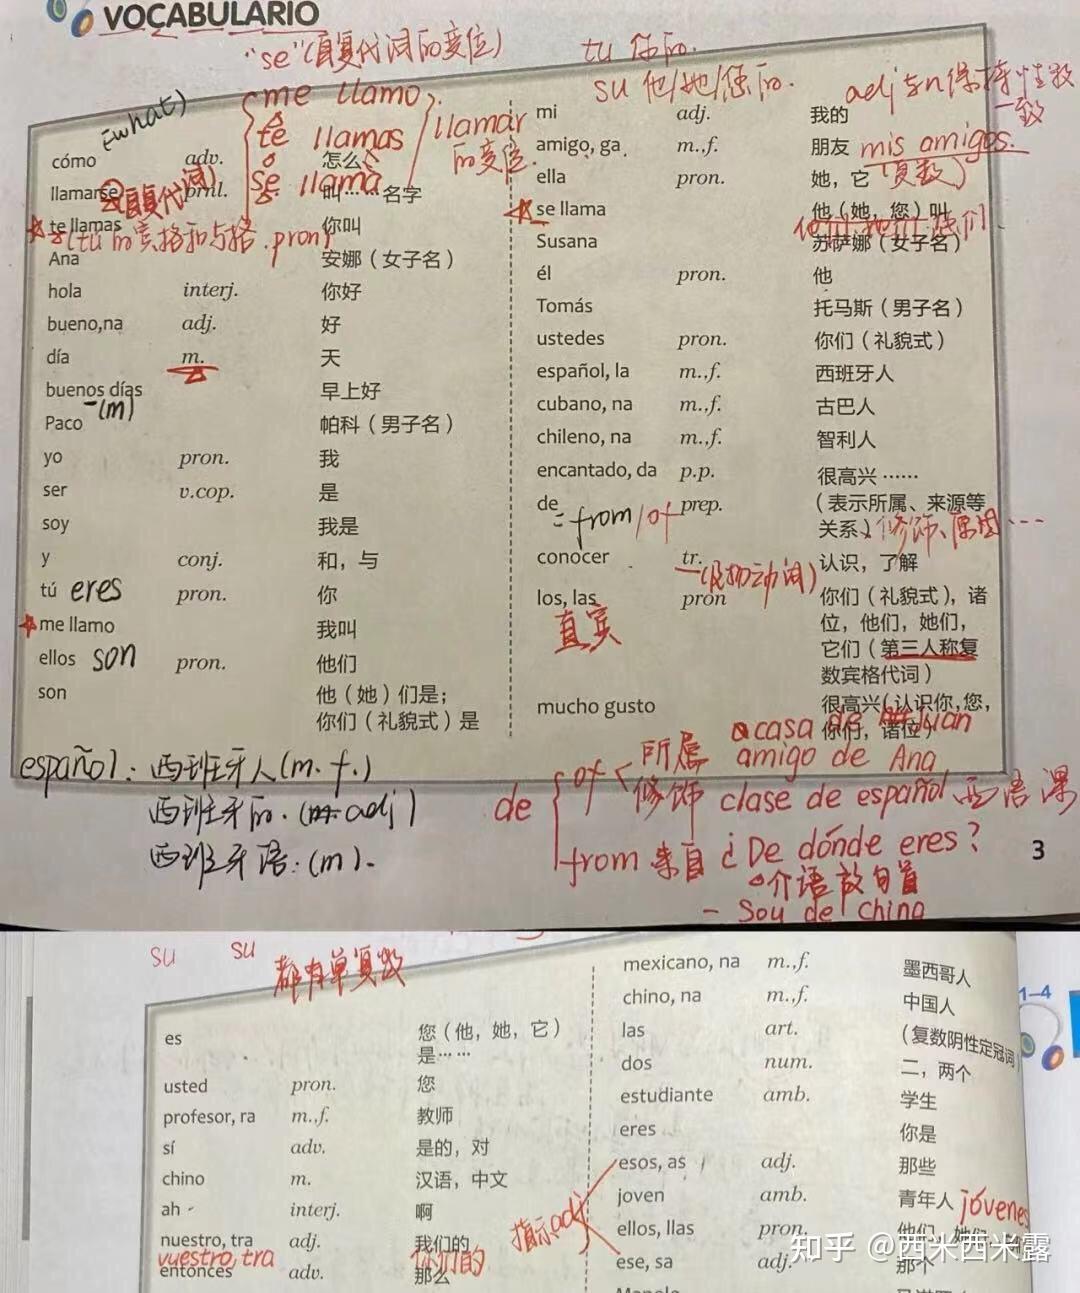 VOCABULARIO
"se"(自复代词的变位)
tu 你的.
su 他/她/您的.
adj与n保持性数一致
(what)
me llamo
te llamas
se llama
llamar的变位.
cómo adv. 怎么
llamarse prnl. 叫……名字
(自复代词)
te llamas 你叫
(tu的宾格和与格.pron)
Ana 安娜（女子名）
hola interj. 你好
bueno,na adj. 好
día m. 天
buenos días 早上好
-(m)
Paco 帕科（男子名）
yo pron. 我
ser v.cop. 是
soy 我是
y conj. 和，与
tú eres pron. 你
me llamo 我叫
ellos son pron. 他们
son 他（她）们是；
你们（礼貌式）是
mi adj. 我的
amigo, ga m.,f. 朋友 mis amigos.
(复数)
ella pron. 她，它
se llama 他（她，您）叫
Susana 苏萨娜（女子名）
él pron. 他
Tomás 托马斯（男子名）
ustedes pron. 你们（礼貌式）
español, la m.,f. 西班牙人
cubano, na m.,f. 古巴人
chileno, na m.,f. 智利人
encantado, da p.p. 很高兴……
de prep. （表示所属、来源等
= from/of
关系） 修饰、原因…
conocer tr. 认识，了解
(及物动词)
los, las pron 你们（礼貌式），诸
直宾
位，他们，她们，
它们（第三人称复
数宾格代词）
mucho gusto 很高兴（认识你，您，
你们，诸位）
español: 西班牙人(m. f.)
西班牙的.(adj)
西班牙语:(m).
de
of
所属 casa de Juan
amigo de Ana
修饰 clase de español 西语课
from 来自 ¿De dónde eres?
介语放句首
- Soy de China
3
su su 都有单复数
es 您（他，她，它）
是……
usted pron. 您
profesor, ra m.,f. 教师
sí adv. 是的，对
chino m. 汉语，中文
ah interj. 啊
nuestro, tra adj. 我们的
vuestro, tra 你们的
entonces adv. 那么
mexicano, na m.,f. 墨西哥人
chino, na m.,f. 中国人
las art. （复数阴性定冠词）
dos num. 二，两个
estudiante amb. 学生
eres 你是
esos, as adj. 那些
指示adj
joven amb. 青年人 jóvenes
ellos, llas pron. 他们，她们
ese, sa adj. 那个
1-4
知乎 @西米西米露